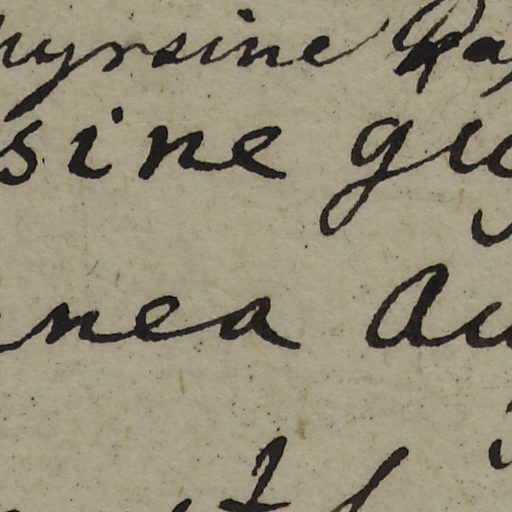 hyrsine Ra
sine gu
nea Au